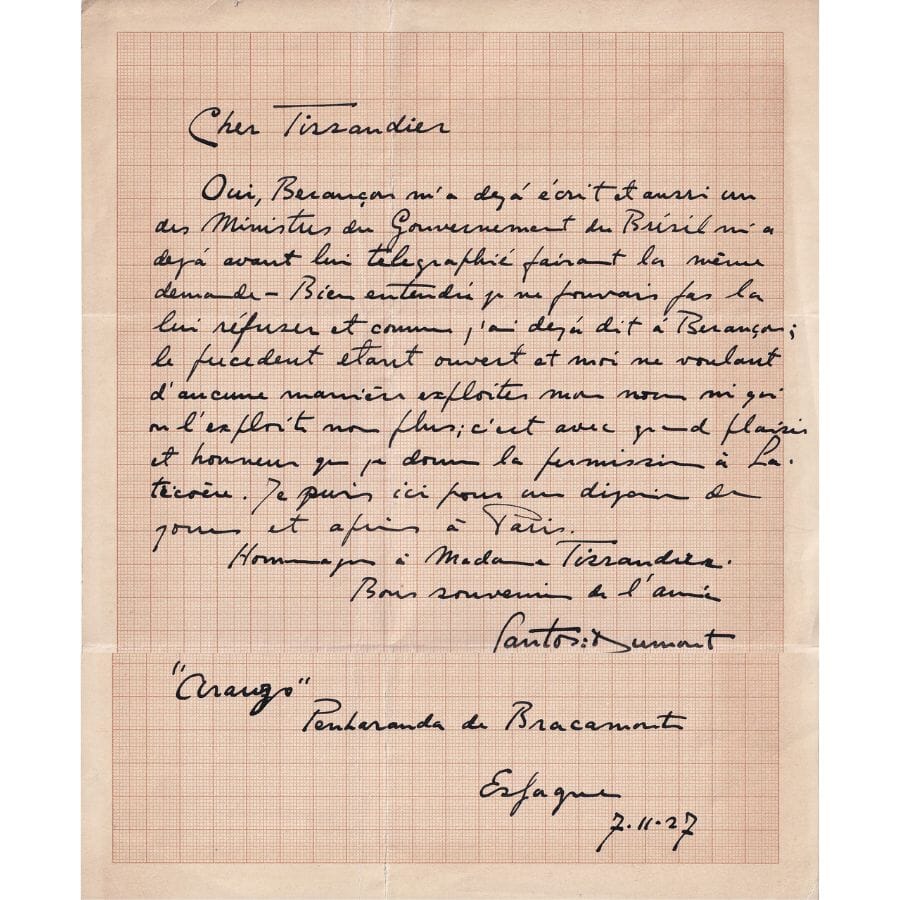 Cher Tissandier
Oui, Besançon m'a dejá écrit et aussi un
des Ministres du Gouvernement du Brésil m'a
dejá avant lui télegraphié faisant la même
demande - Bien entendu je ne pouvais pas la
lui réfuser et comme j'ai dejá dit à Besançon;
le précedent etant ouvert et moi ne voulant
d'aucune manière exploiter mon nom ni qui
on l'exploite non plus; c'est avec grand plaisir
et honneur que je donne la permission à La-
técoère. Je suis ici pour une dizaine de
jours et après à Paris.
Hommages à Madame Tissandier.
Bons souvenirs de l'ami
Santos=Dumont
"Araugo"
Penharanda de Bracamonte
Espagne
7.11.27